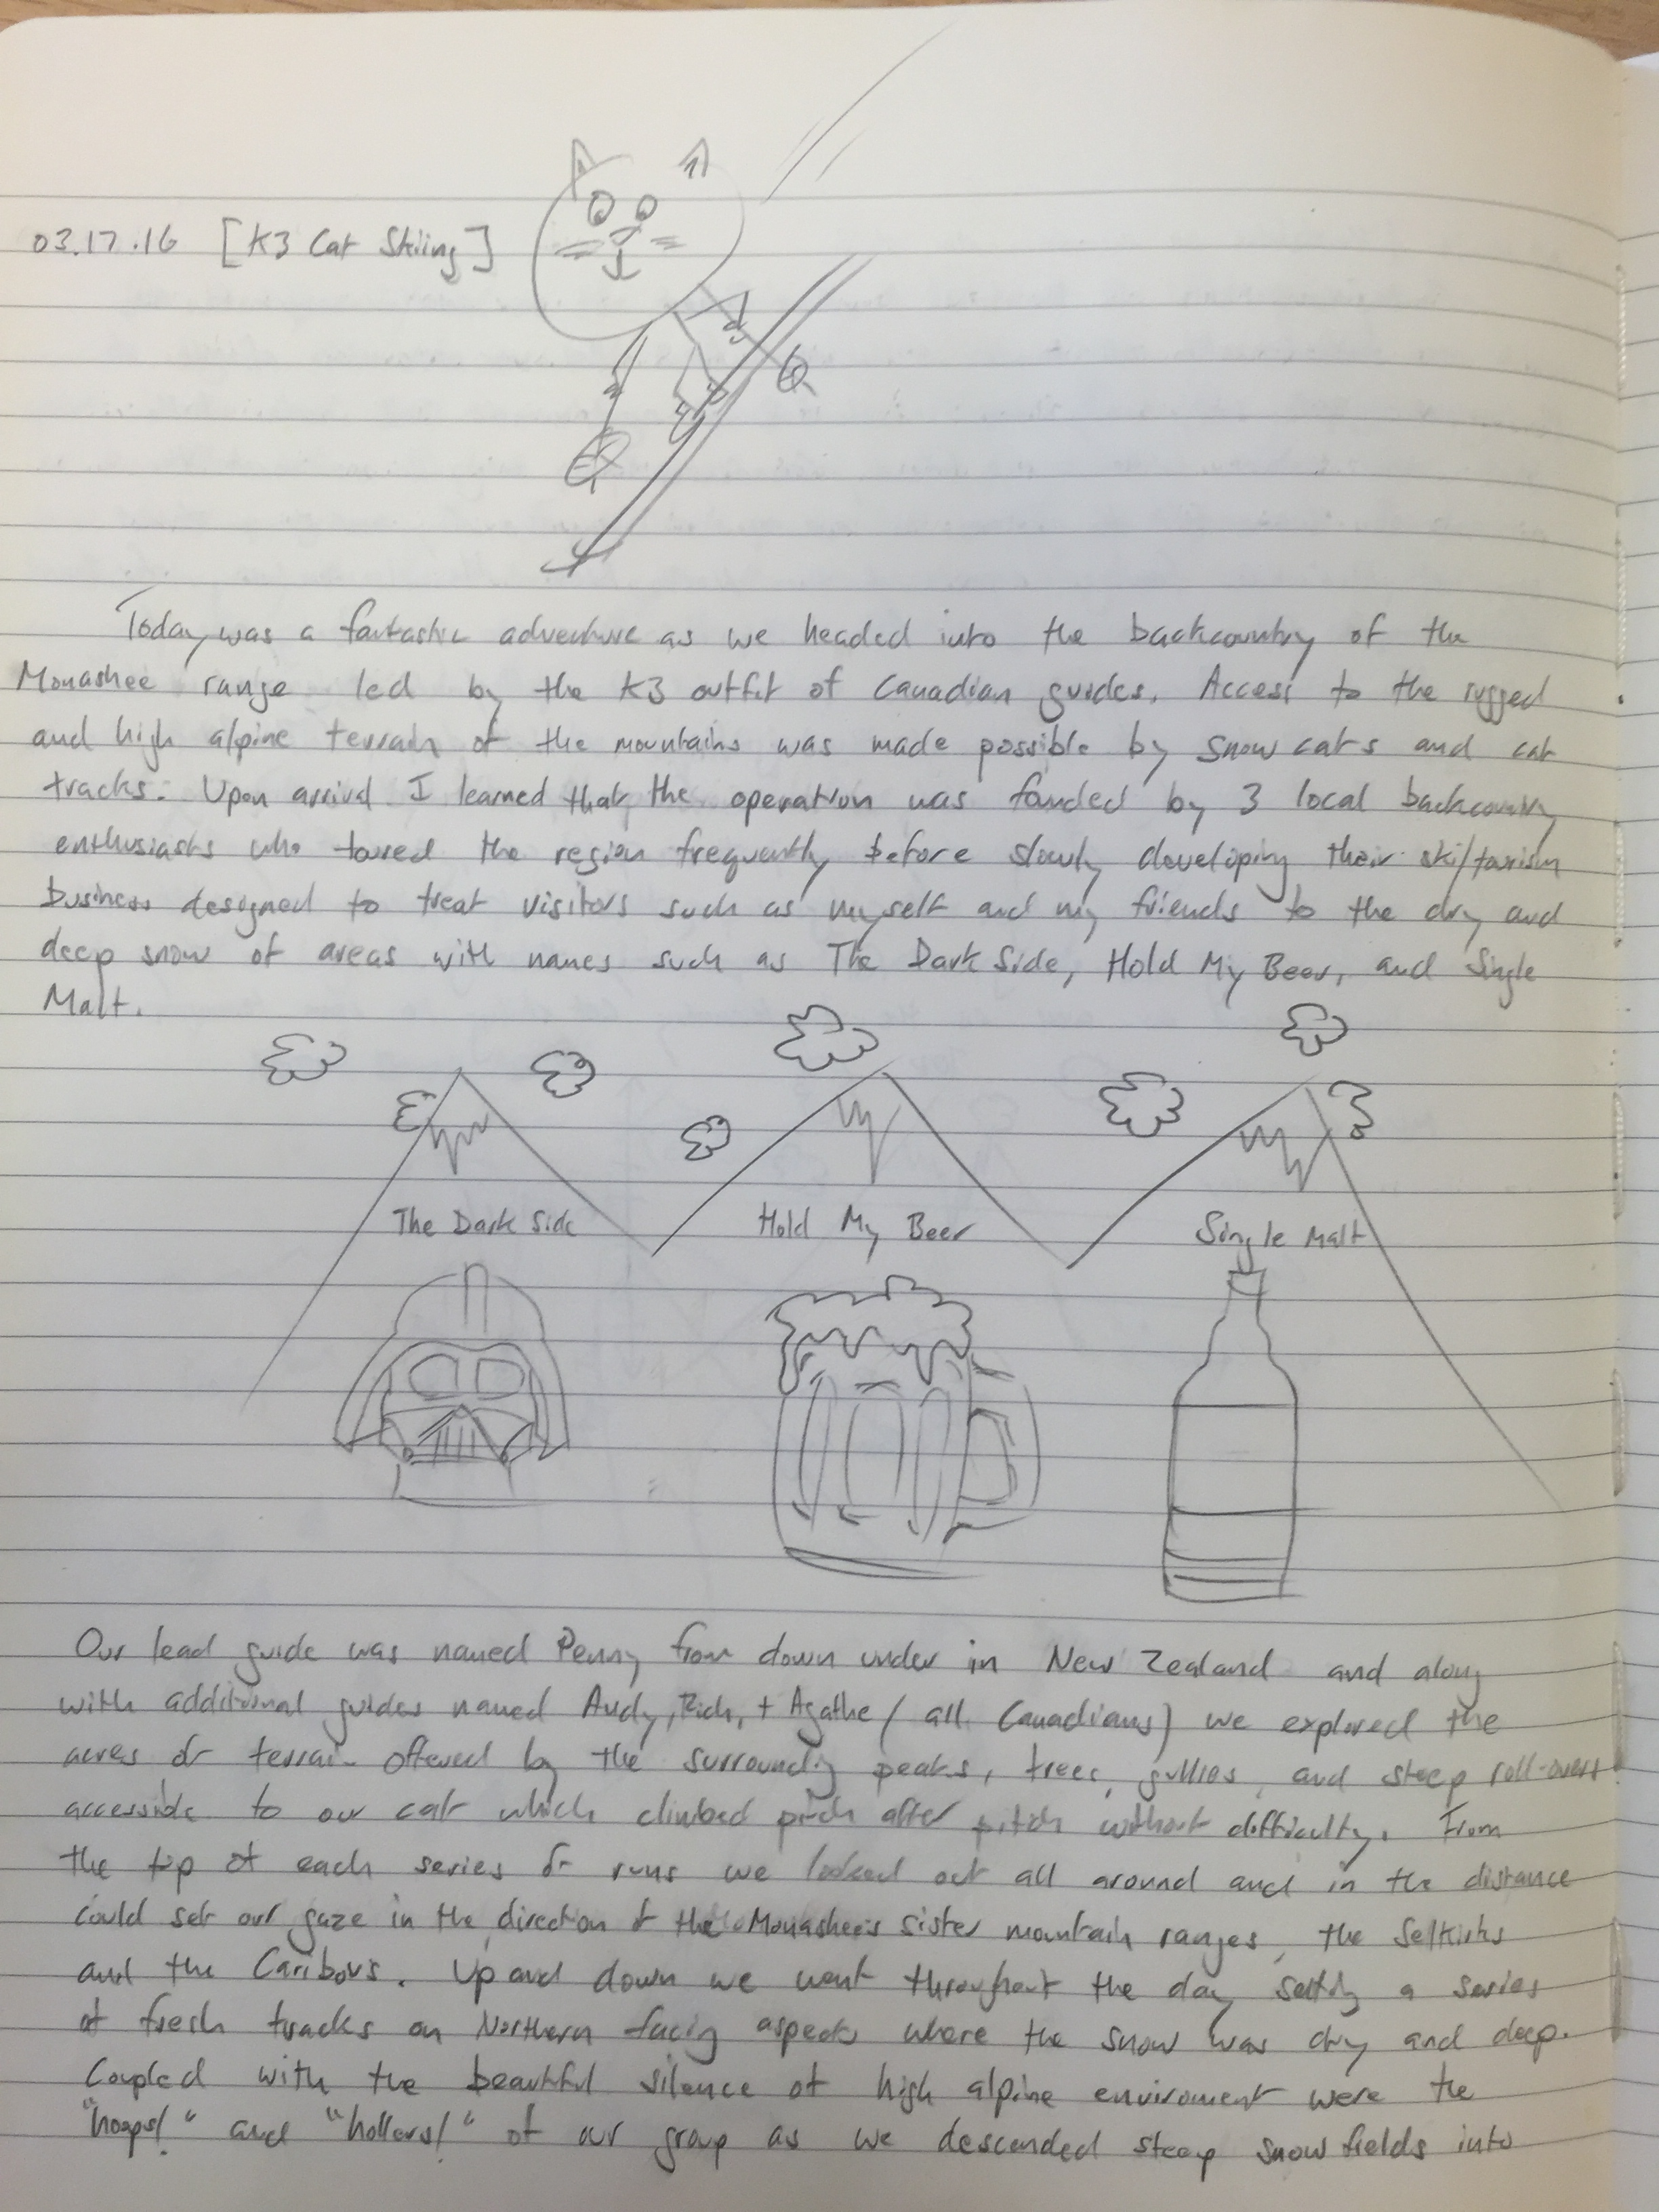 03.17.16 [K3 Cat Skiing]
Today was a fantastic adventure as we headed into the backcountry of the
Monashee range led by the K3 outfit of Canadian guides. Access to the rugged
and high alpine terrain of the mountains was made possible by snow cats and cat
tracks. Upon arrival I learned that the operation was founded by 3 local backcountry
enthusiasts who toured the region frequently before slowly developing their ski/tourism
business designed to treat visitors such as myself and my friends to the dry and
deep snow of areas with names such as The Dark Side, Hold My Beer, and Single
Malt.
The Dark Side Hold My Beer Single Malt
Our lead guide was named Penny from down under in New Zealand and along
with additional guides named Andy, Rich, + Agathe (all Canadians) we explored the
acres of terrain offered by the surrounding peaks, trees, gullies, and steep roll-overs
accessible to our cat which climbed pitch after pitch without difficulty. From
the top of each series of runs we looked out all around and in the distance
could set our gaze in the direction of the Monashee's sister mountain ranges, the Selkirks
and the Caribous. Up and down we went throughout the day setting a series
of fresh tracks on Northern facing aspects where the snow was dry and deep.
Coupled with the beautiful silence of high alpine enviroment were the
"hoops!" and "hollers!" of our group as we descended steep snow fields into